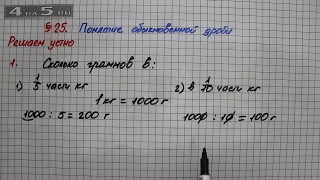 4 на 5.ru
§ 25. Понятие обыкновенной дроби
Решаем устно
1. Сколько граммов в:
1) 1/5 части кг 2) в 1/10 части кг
1 кг = 1000 г
1000 : 5 = 200 г 1000 : 10 = 100 г